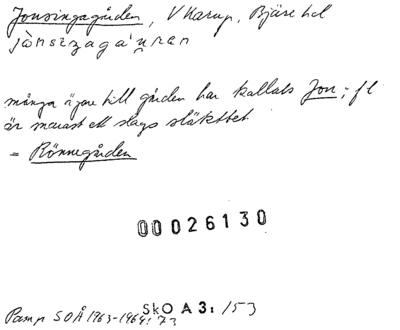 Jonsingagården, V Karup, Bjäre hd
många ägare till gården har kallats Jon; fl
är mest ett slags släkttet
= Rönnegården
00026130
SkO A 3: /53
Pamp SOÅ 1963-1964: 73